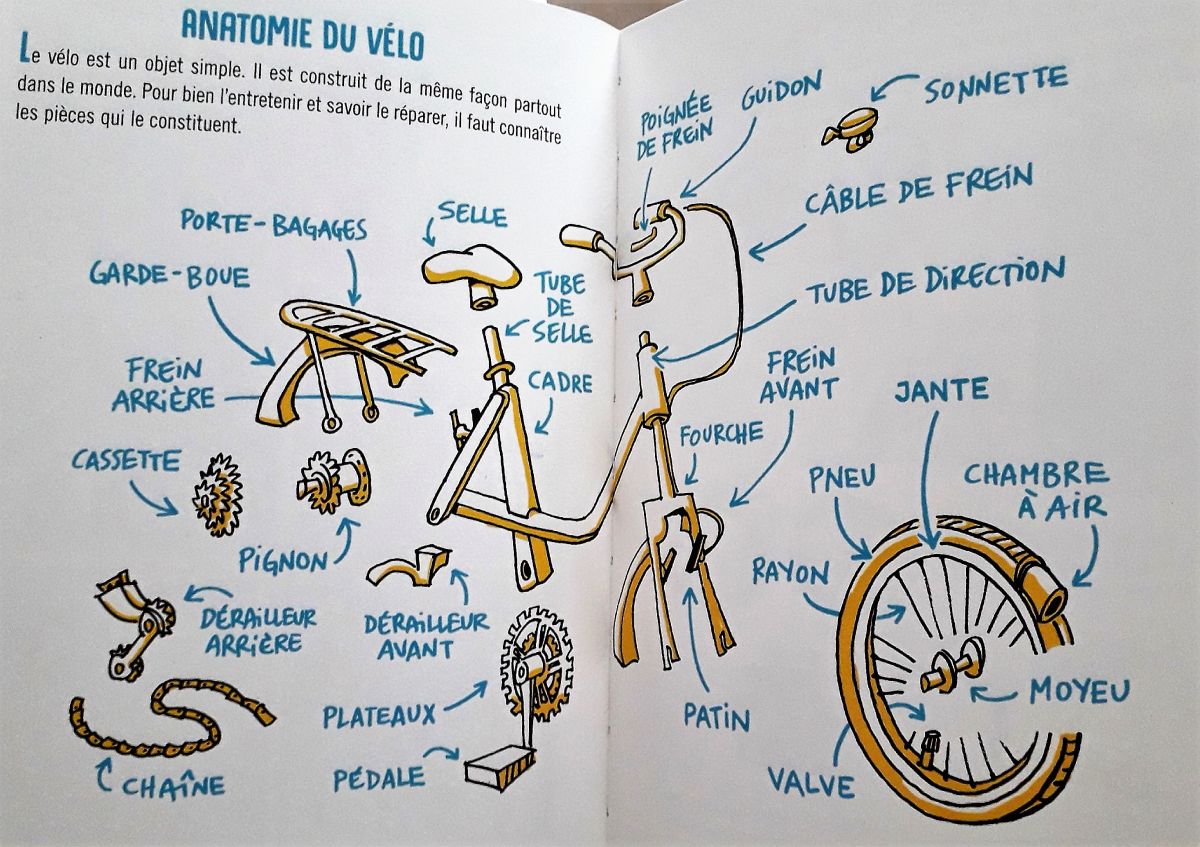 ANATOMIE DU VÉLO
Le vélo est un objet simple. Il est construit de la même façon partout
dans le monde. Pour bien l'entretenir et savoir le réparer, il faut connaître
les pièces qui le constituent.
PORTE-BAGAGES
SELLE
GARDE-BOUE
TUBE
DE
SELLE
FREIN
ARRIÈRE
CADRE
CASSETTE
PIGNON
DÉRAILLEUR
ARRIÈRE
DÉRAILLEUR
AVANT
PLATEAUX
PÉDALE
CHAÎNE
POIGNÉE
DE FREIN
GUIDON
SONNETTE
CÂBLE DE FREIN
TUBE DE DIRECTION
FREIN
AVANT
JANTE
FOURCHE
PNEU
CHAMBRE
À AIR
RAYON
MOYEU
PATIN
VALVE